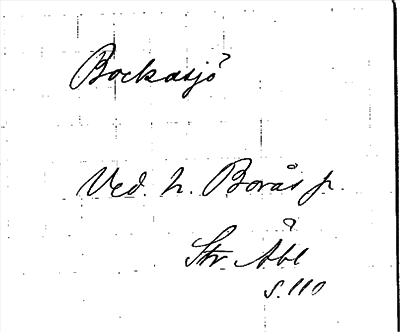 Bockasjö
Ved. h. Borås p.
Str Åbl
s. 110